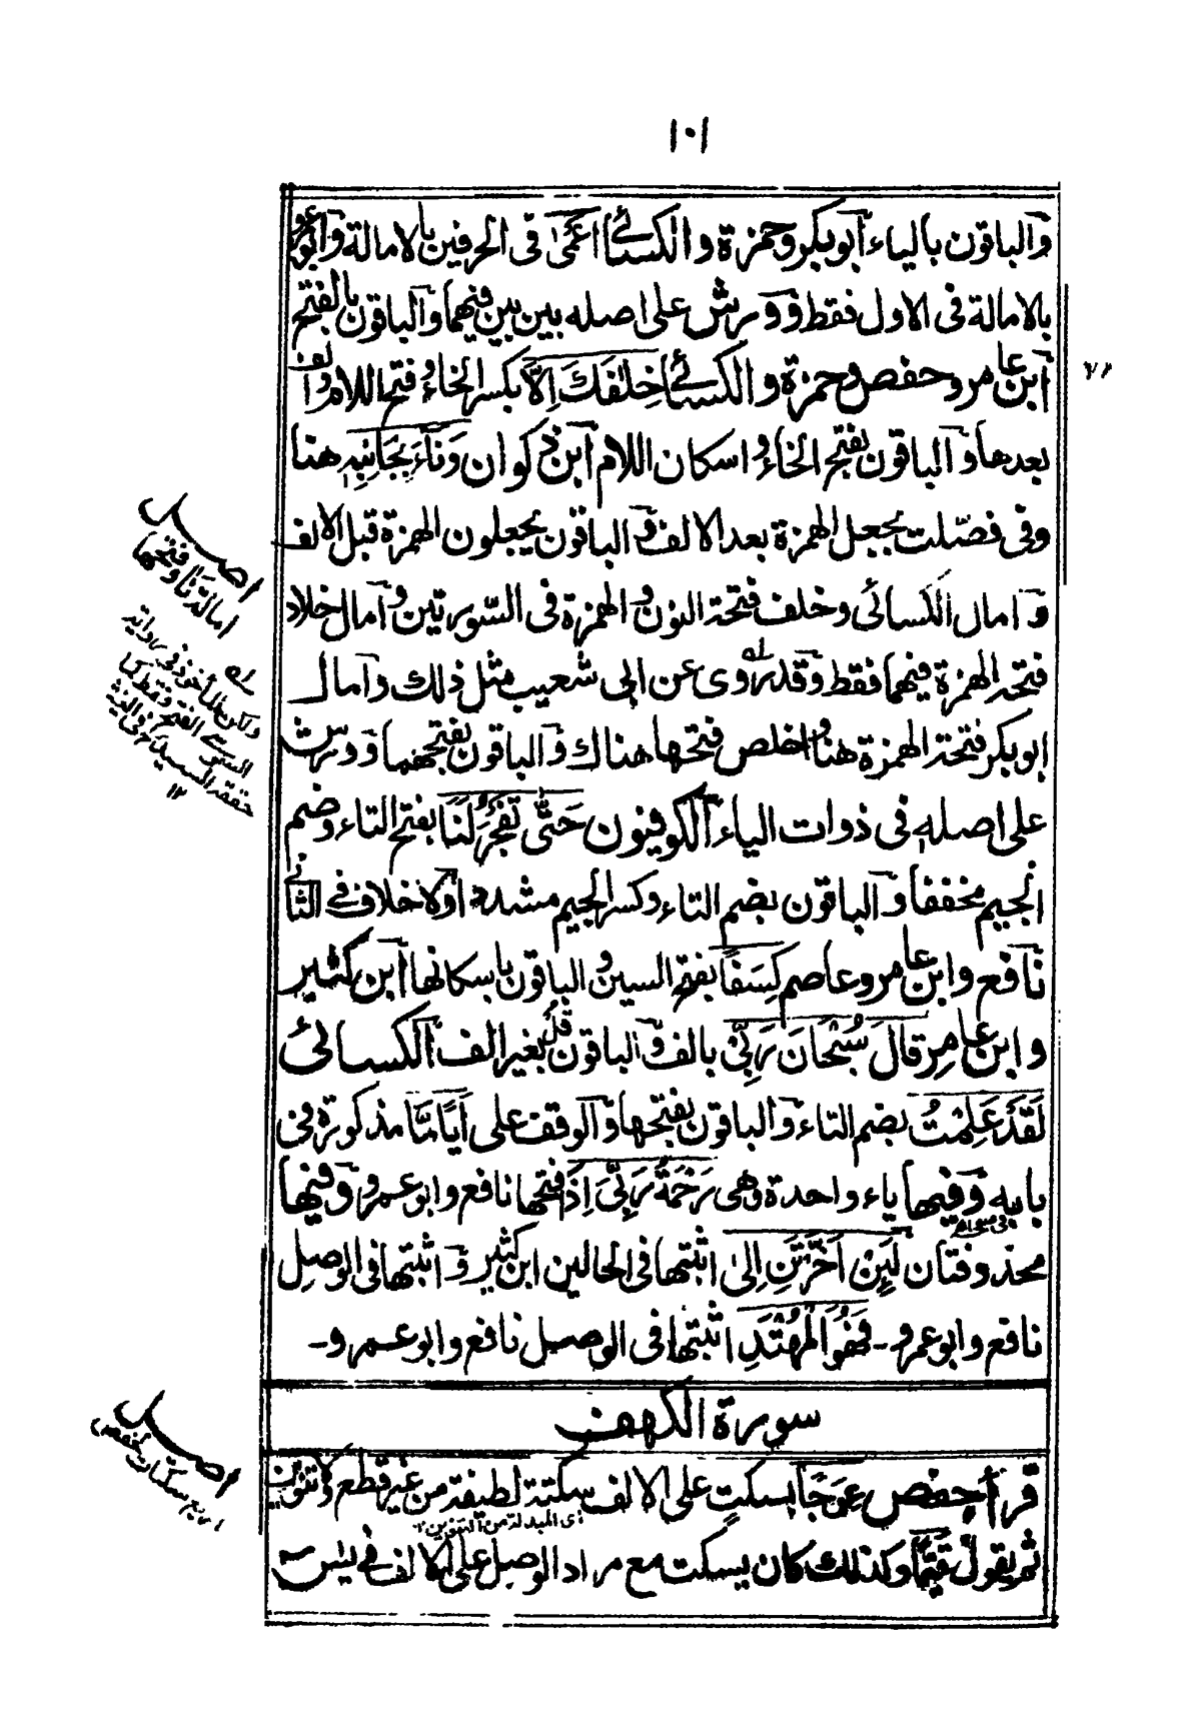 ١٠١
والباقون بالياء ابوبكر وحمزة والكسائي اَعْمٰى فى الحرفين بالامالة وابوعمرو
بالامالة فى الاول فقط وورش على اصله بين بين فيهما والباقون بالفتح
ابن عامر وحفص وحمزة والكسائي خِلٰفَكَ اِلَّا بكسر الخاء وفتح اللام والف
بعدها والباقون بفتح الخاء واسكان اللام ابن ذكوان وَنَآءَ بِجَانِبِهٖ هنا
وفى فصّلت بجعل الهمزة بعد الالف والباقون يجعلون الهمزة قبل الالف
وامال الكسائى وخلف فتحة النون والهمزة فى السّورتين وامال خلاد
فتحة الهمزة فيهما فقط وقد روى عن ابى شعيب مثل ذلك وامال
ابوبكر فتحة الهمزة هنا واخلص فتحها هناك والباقون بفتحهما وورش
على اصله فى ذوات الياء الكوفيون حَتّٰى تَفْجُرَ لَنَا بفتح التاء وضم
الجيم مخففا والباقون بضم التاء وكسر الجيم مشددا ولا خلاف فى الثانى
نافع وابن عامر وعاصم كِسَفًا بفتح السين والباقون باسكانها ابن كثير
وابن عامر قَالَ سُبْحَانَ رَبِّىْ بالف والباقون قُلْ بغير الف الكسائى
لَقَدْ عَلِمْتُ بضم التاء والباقون بفتحها والوقف على اَيًّا مَّا مذكورة فى
بابه وفيها ياء واحدة وهى رَحْمَةِ رَبِّىْ اِذًا فتحها نافع وابوعمرو وفيها
محذوفتان لَئِنْ اَخَّرْتَنِ اِلٰى اثبتها فى الحالين ابن كثير و اثبتها فى الوصل
نافع وابوعمرو - فَهُوَ الْمُهْتَدِ اثبتها فى الوصل نافع وابوعمرو -
سورة الكهف
قرأ حفص عِوَجَا بسكت على الالف سكتة لطيفة من غير قطع ولا تنوين
اى المبدلة من التنوين ١٢
ثم يقول قَيِّمًا وكذلك كان يسكت مع مراد الوصل على الالف فى يٰس
٧٦
اصل
امالة نا وفتحها
ولكن المأخوذ فى رواية
السوسى الفتح فقط كما
حققه السيد فى الغيث
١٢
اصل
اربع سكتات لحفص